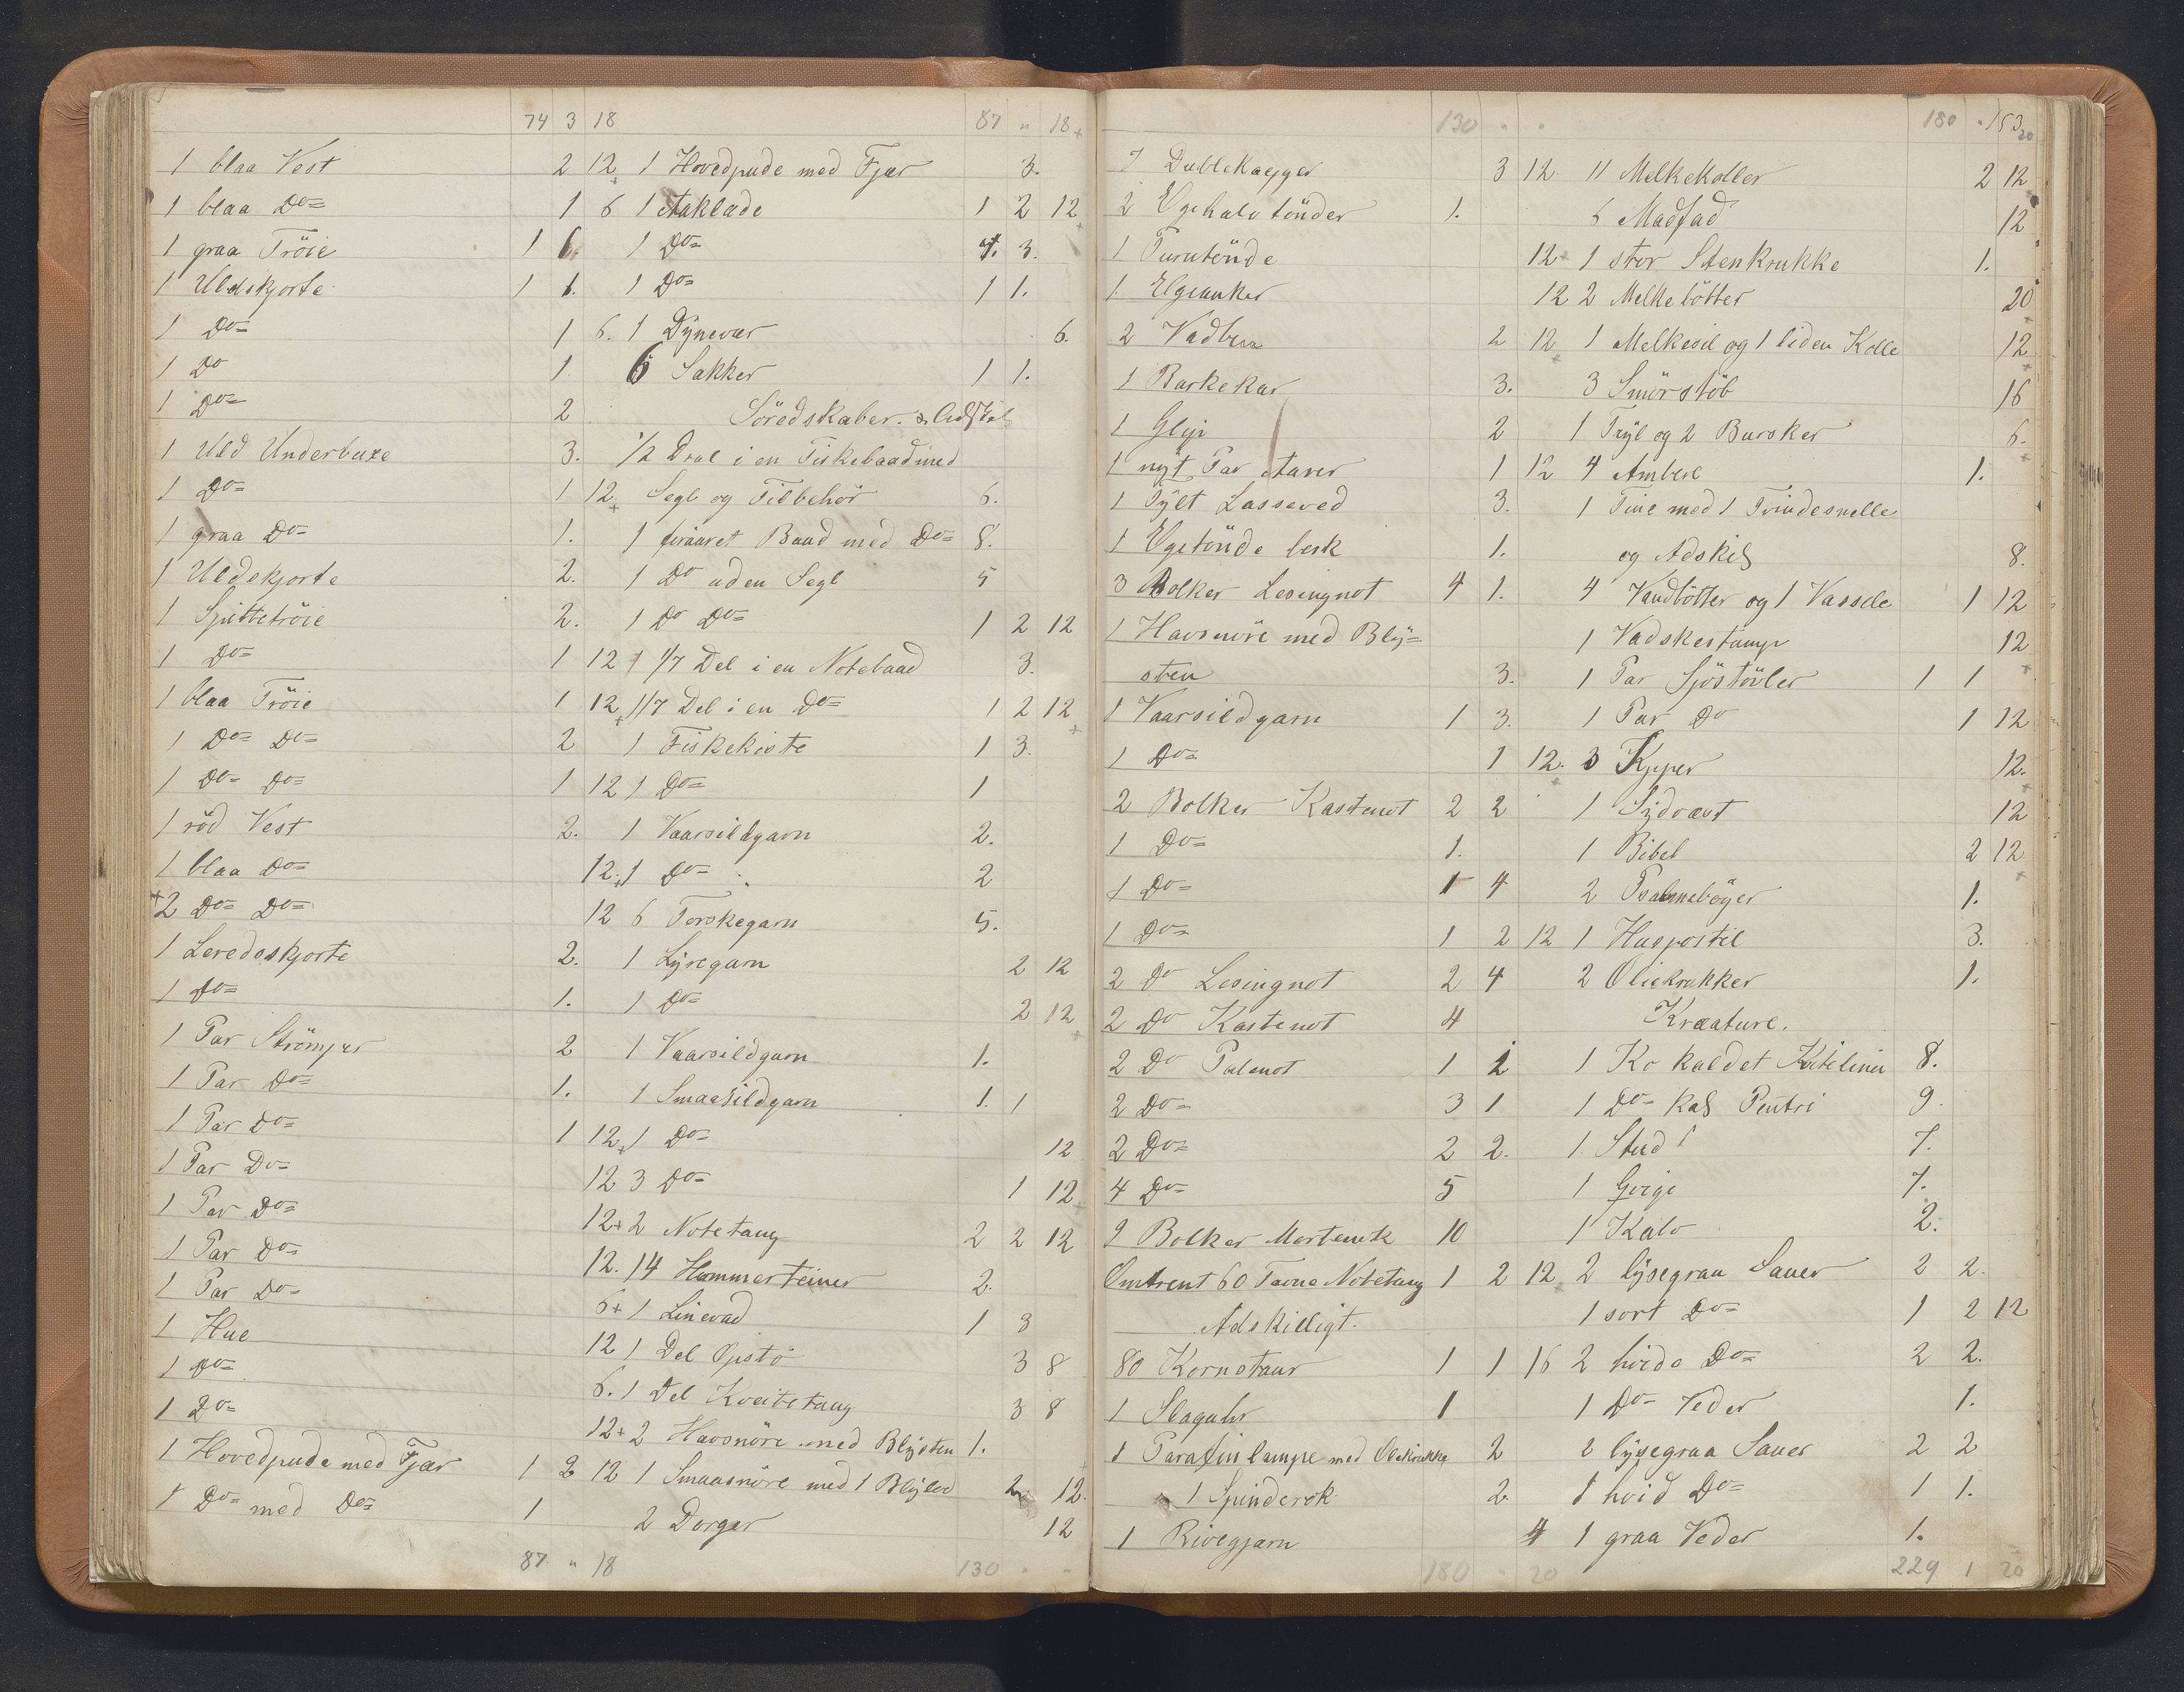 74 3 18
1 blaa Vest 2 12
1 blaa Do= 1 6
1 graa Tröie 1 1.
1 Uldskjorte 1 1.
1 Do= 1 6.
1 Do 1
1 Do= 2
1 Uld Underbuxe 3.
1 Do= 1 12
1 graa Do= 1.
1 Uldskjorte 2.
1 Spittetröie 2.
1 Do= 1 12
1 blaa Tröie 1 12
1 Do= Do= 2
1 Do= Do= 1 12
1 röd Vest 2.
1 blaa Do= 12.
2 Do= Do= 12
1 Leredsskjorte 2.
1 Do= 1.
1 Par Strömper 2
1 Par Do= 1.
1 Par Do= 1 12
1 Par Do= 12
1 Par Do= 12
1 Par Do= 12.
1 Par Do= 6
1 Hue 12
1 Do= 6.
1 Do= 12
1 Hovedpude med Fjær 1 2 12
1 Do= med Do= 1
87 " 18
87 " 18
1 Hovedpude med Fjær 3.
1 Aaklæde 1 2 12
1 Do= 1. 3.
1 Do= 1 1.
1 Dÿnevær 6.
6 Sækker 1 1.
Söredskaber & Adskil
1/2 Deel i en Fiskebaad med
Segl og Tilbehör 6.
1 firaaret Baad med Do= 8.
1 Do uden Segl 5
1 Do Do= 1 2 12
1/7 Del i en Notebaad 3.
1/7 Del i en Do= 1 2 12
1 Fiskekiste 1 3.
1 Do= 1
1 Vaarsildgarn 2.
1 Do= 2
6 Torskegarn 5.
1 Lÿregarn 2 12
1 Do= 2 12
1 Vaarsildgarn 1.
1 Smaasildgarn 1. 1
1 Do= 12
3 Do= 1 12
2 Notetaug 2 2 12
14 Hummerteiner 2.
1 Linevad 1 3
1 Del Opstö 3 8
1 Del Kveitetaug 3 8
2 Havsnöre med Blÿsten 1.
1 Smaasnöre med 1 Blÿlod 2 12.
2 Dorger 12
130 " "
130 " "
7 Dublekagger 3 12.
2 Egehalvtönder 1.
1 Furutönde 12
1 Elgeanker 12
2 Vadben 2 12
1 Barkekar 3.
1 Glip 2
1 nyt Par Aarer 1 12
1 Tÿlt Lasseved 3.
1 Egetönde besk 1.
3 Bolker Lesingnot 4 1.
1 Havsnöre med Blÿ=
sten 3.
1 Vaarsildgarn 1 3.
1 Do= 1 12.
2 Bolker Kastenot 2 2
1 Do= 1.
1 Do= 1 4
1 Do= 1 2 12
2 Do Lesingnot 2 4
2 Do Kastenot 4
2 Do Palenot 1 1
2 Do= 3 1
2 Do= 2 2.
4 Do= 5
2 Bolker Mortensk 10
Omtrent 60 Favne Notetaug 1 2 12
Adskilligt.
80 Kornstaur 1 1 16
1 Slaguhr 1
1 Parafinlampe med Oliekrukke 2
1 Spinderok 2.
1 Rivegjarn 4
180 " 20
180 "
11 Melkekoller 2 12
6 Madfad 12
1 stor Stenkrukke 1.
2 Melkebötter 20
1 Melkesil og 1 liden Kolle 12
3 Smörstöb 16
1 Trÿl og 2 Bursker 6.
4 Ambere 1.
1 Tine med 1 Tvindesnelle
og Adskil 8.
4 Vandbötter og 1 Vassele 1 12
1 Vadskestamp 12
1 Par Sjöstövler 1 1
1 Par Do 1 12
3 Kipper 12.
1 Sydvæst 12
1 Bibel 2 12
2 Psalmebøger 1.
1 Huspostil 3.
2 Oliekrukker 1.
Kreature.
1 Ko kaldet 8.
1 Do= Kal 9.
1 Stud 7.
1 Gvige 7.
1 Kalv 2.
2 lÿsegraa Sauer 2 2.
1 sort Do= 1 2 12
2 hvide Do= 2 2.
1 Do= Veder 1.
2 lÿsegraa Sauer 2 2
1 hvid Do= 1 1.
1 graa Veder 1.
229 1 20